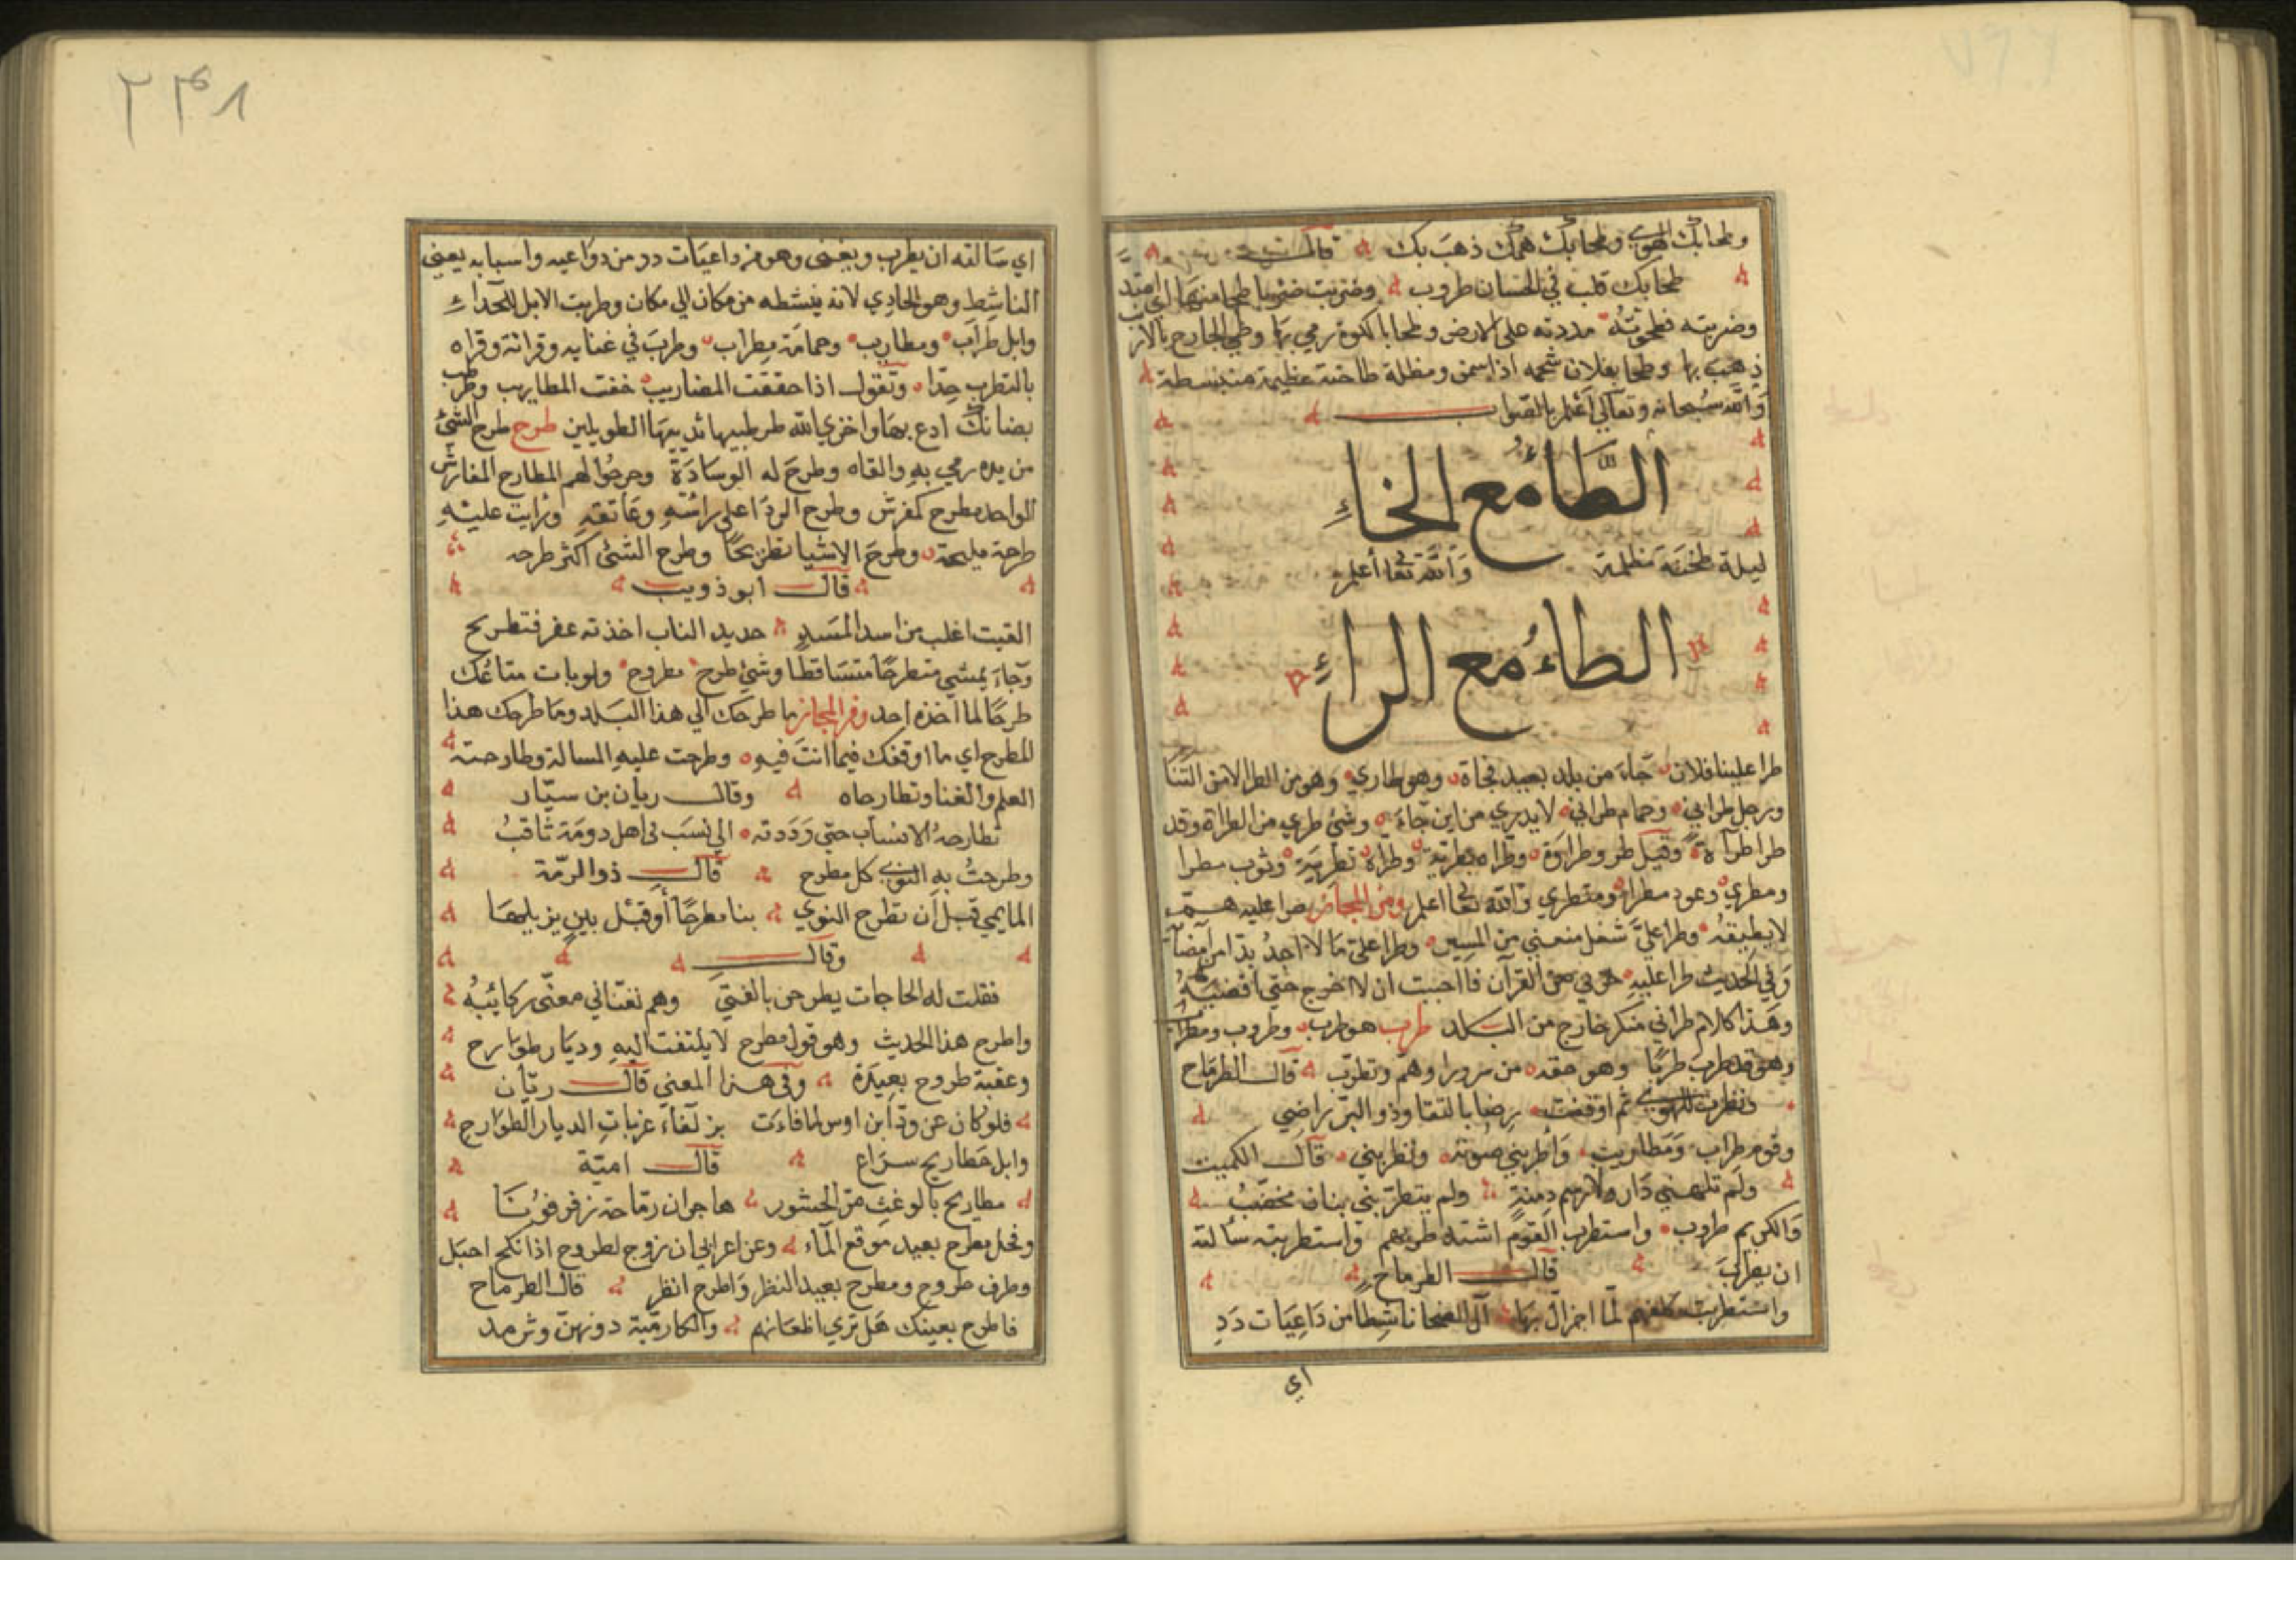 وطحابك الهوي وطحابك همك ذهب بك قالـــت
طحابك قلب في الحسان طروب وضربت ضربا طحا منها اي امتد
وضربته فطحوته مددته علي الارض وطحا بالكوة رمي بها وطحي الجارح بالارنب
ذهب بها وطحا بفلان شحمه اذا سمن ومظلة طاحنة عظيمة منبسطة
والله سبحانه وتعالي اعلم بالصواب
الطاء مع الخاء
ليلة طخنة مظلمة والله تعا أعلم
الطاء مع الراء
طرا علينا فلان جاء من بلد بعيد فجاة وهو طاري وهو من الطرا لا من التنا
ورجل طراني وحمام طراني لا يدري من اين جاء وشئ طري من الطراة وقد
طرا طرآة وقيل طرو طراوة وطراه بطرية وطراه تطرية وثوب مطرا
ومطري وعود مطرا ومتطري والله تعا اعلم ومن المجاز طرا عليه هم
لا يطيقه وطرا علي شغل منعني من المسير وطرا علي ما لا اجد بدا من امضا
وفي الحديث طرا عليه حزبي من القرآن فااحببت ان لا اخرج حتي اقضيه
وهذا كلام طراني منكر خارج من البلد طرب هو طرب وطروب ومطراب
وهو قد طرب طربا وهو خفة من سرور او هم وتطرب قالـــ الطرماح
وتطربت للهوي ثم اوقفت رضا بالتقا وذو البر راضي
وقوم طراب ومطاريب واطربني صوته وتطربني قالـــ الكميت
ولم تلهني دار ولا رسم دمنة ولم يتطربني بنان مخضب
والكريم طروب واستطرب القوم اشتد طربهم واستطربته سالته
ان يطرب قالـــ الطرماح
واستطربت ظعنهم لما احزال بها آل الضحا ناشطا من داعيات دد
اي
٢٣٨
اي سالته ان يطرب ويغني وهو من داعيات دد من دواعيه واسبابه يعني
الناشط وهو الحادي لانه ينشطه من مكان الي مكان وطربت الابل للحداء
وابل طراب ومطاريب وحمامة مطراب وطرب في غنايه وقرانة وقراه
بالتطريب جدا وتقول اذا خفقت المضاريب خفت المطاريب وطرطب
بضانك ادع بها واخزي الله طرطبيها ثدييها الطويلين طرح طرح الشئ
من يده رمي به والقاه وطرح له الوسادة وحرصوا لهم المطارح المفارش
الواحد مطرح كمفرش وطرح الردا علي راسه وعاتقه ورايت عليه
طرحة مليحة وطرح الاشيا تطريحا وطرح الشئ اكثر طرحه
قالـــ ابو ذويب
القيت اغلب من اسد المسد حديد الناب اخذته عفر فتطريح
وجاء يمشي متطرحا متساقطا وشئ طرح مطروح ولو بات متاعك
طرحا لما اخذه احد ومن المجاز ما طرحك الي هذا البلد وما طرحك هذا
المطرح اي ما اوقفك فيما انت فيه وطرحت عليه المسالة وطارحته
العلم والغنا وتطارحاه وقالـــ ريان بن سيار
تطارحه الانساب حتي رددته الي نسب في اهل دومة ثاقب
وطرحت به النوي كل مطرح قالـــ ذو الرمة
الما يمي قبل أن تطرح النوي بنا مطرحا أو قبل بين يزيلها
وقالـــ
فقلت له الحاجات يطرحن بالفتي وهم تغناني معنى ركائبه
واطرح هذا الحديث وهو قول مطرح لا يلتفت اليه وديار طوارح
وعقبة طروح بعيدة وفي هذا المعني قالـــ ريان
فلو كان عن ود ابن اوس لما فاءت بزلفاء غربات الديار الطوارح
وابل مطاريح سراع قالـــ امية
مطاريح بالوغث من الحشور هاجرن رماحة زفرفونا
وفحل مطرح بعيد موقع الماء وعن اعرابي ان زوج لطروح اذا نكح احبل
وطرف طروح ومطرح بعيد النظر واطرح انظر قال الطرماح
فاطرح بعينك هل تري اظعانهم والكارمية دونهن وثرمد